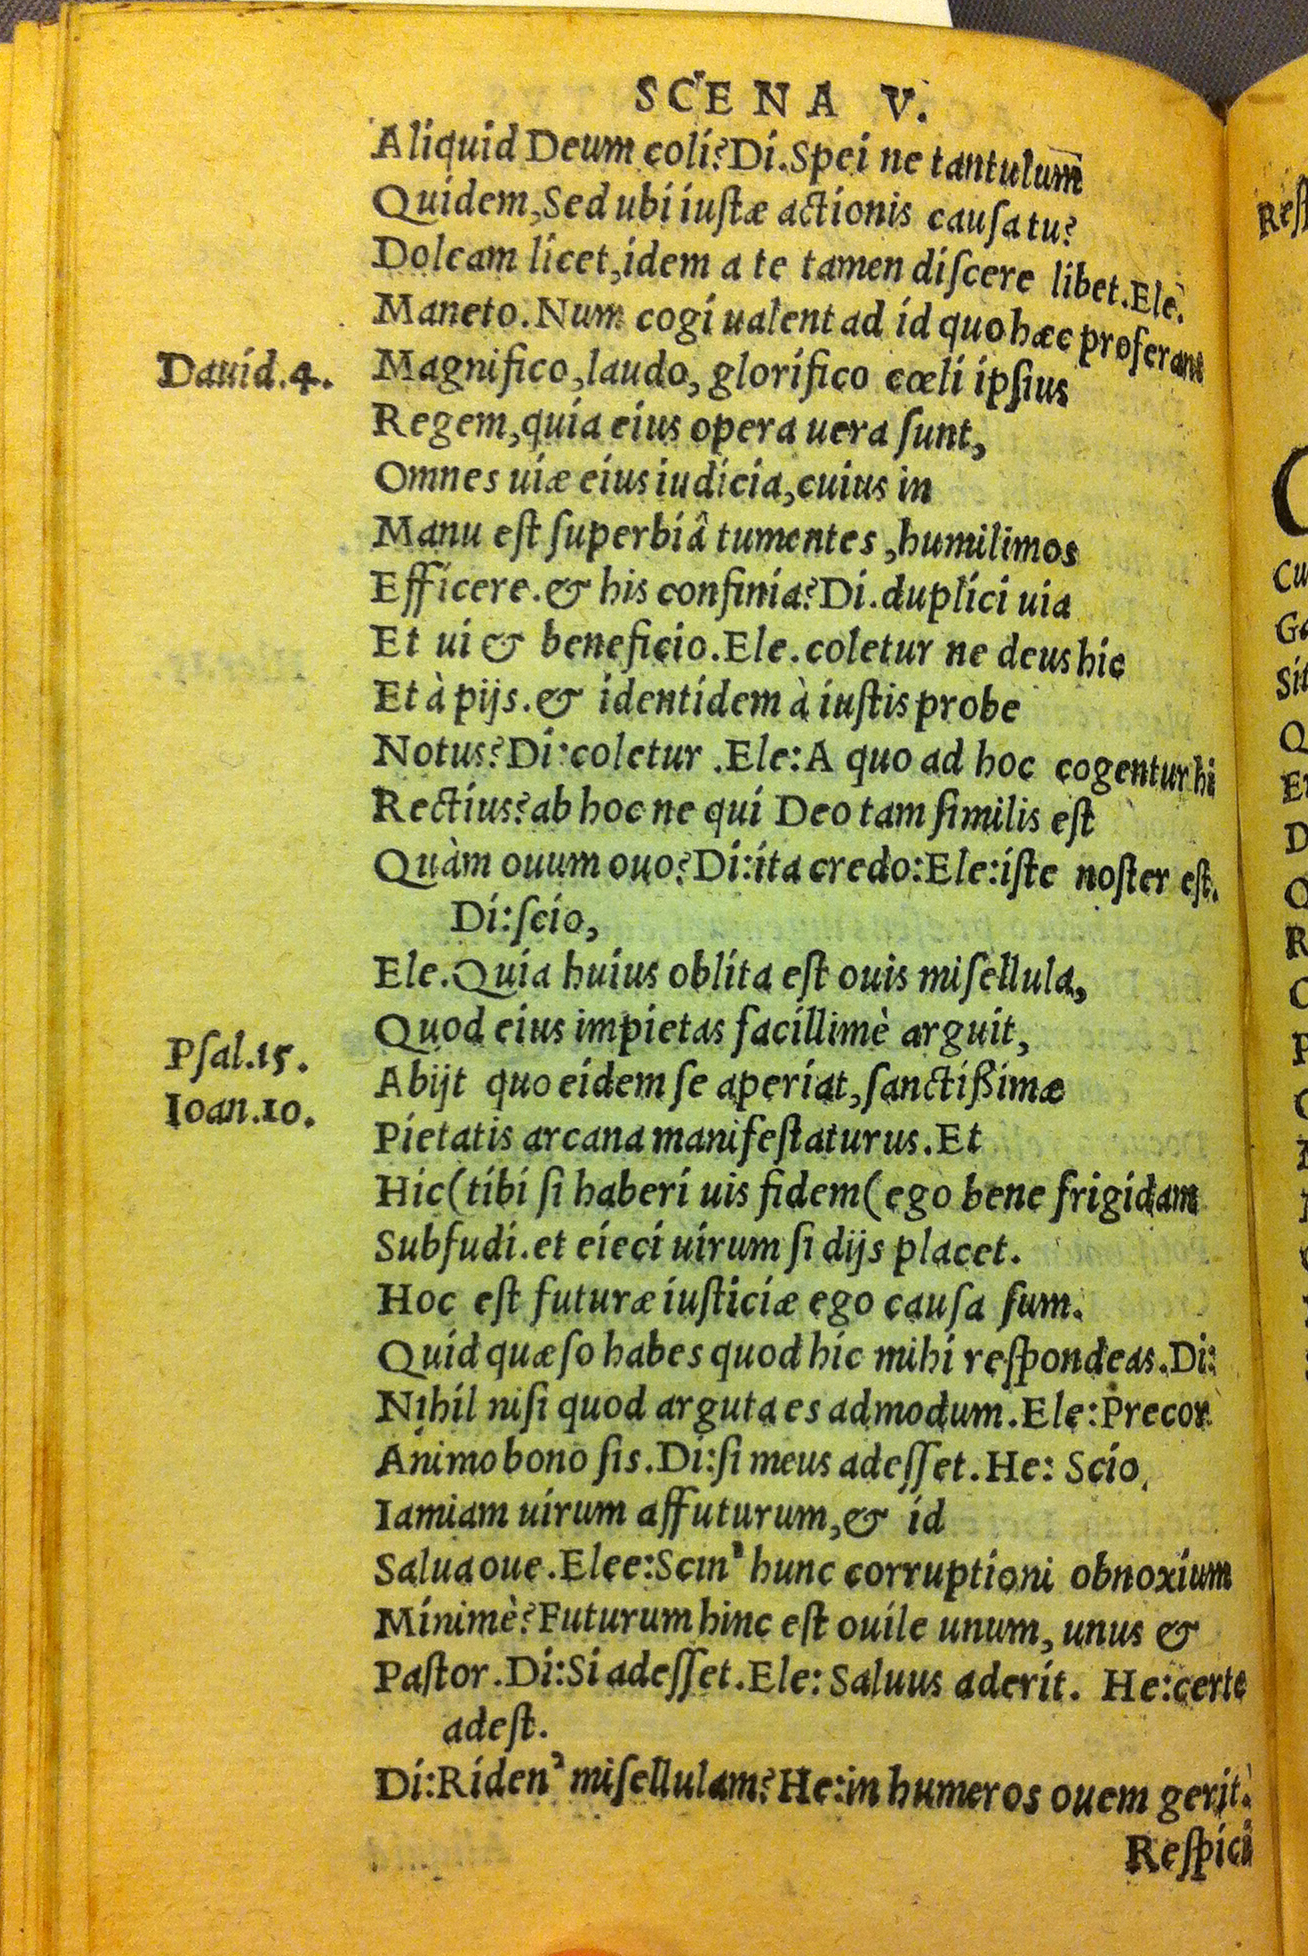 SCENA V.
Aliquid Deum coli? Di. Spei ne tantulum̄
Quidem, Sed ubi iuſtæ actionis cauſa tu?
Doleam licet, idem a te tamen diſcere libet. Ele.
Maneto. Num cogi ualent ad id quo hæc proferant
Dauid.4. Magnifico, laudo, glorifico cœli ipſius
Regem, quia eius opera uera ſunt,
Omnes uiæ eius iudicia, cuius in
Manu eſt ſuperbiâ tumentes, humilimos
Efficere. & his confinia? Di. duplici uia
Et ui & beneficio. Ele. coletur ne deus hic
Et à pijs. & identidem à iuſtis probe
Notus? Di: coletur. Ele: A quo ad hoc cogentur hi
Rectius? ab hoc ne qui Deo tam ſimilis eſt
Quàm ouum ouo? Di: ita credo: Ele: iſte noſter eſt.
Di: ſcio,
Ele. Quia huius oblita eſt ouis miſellula,
Quod eius impietas facillimè arguit,
Pſal.15.
Abijt quo eidem ſe aperiat, ſanctißimæ
Ioan.10.
Pietatis arcana manifeſtaturus. Et
Hic (tibi ſi haberi uis fidem( ego bene frigidam
Subfudi. et eieci uirum ſi dijs placet.
Hoc eſt futuræ iuſticiæ ego cauſa ſum.
Quid quæſo habes quod hic mihi reſpondeas. Di:
Nihil niſi quod arguta es admodum. Ele: Precor
Animo bono ſis. Di: ſi meus adeſſet. He: Scio,
Iamiam uirum affuturum, & id
Salua oue. Elee: Scin' hunc corruptioni obnoxium
Minimè? Futurum hinc eſt ouile unum, unus &
Paſtor. Di: Si adeſſet. Ele: Saluus aderit. He: certe
adeſt.
Di: Riden' miſellulam? He: in humeros ouem gerit.
Reſpici